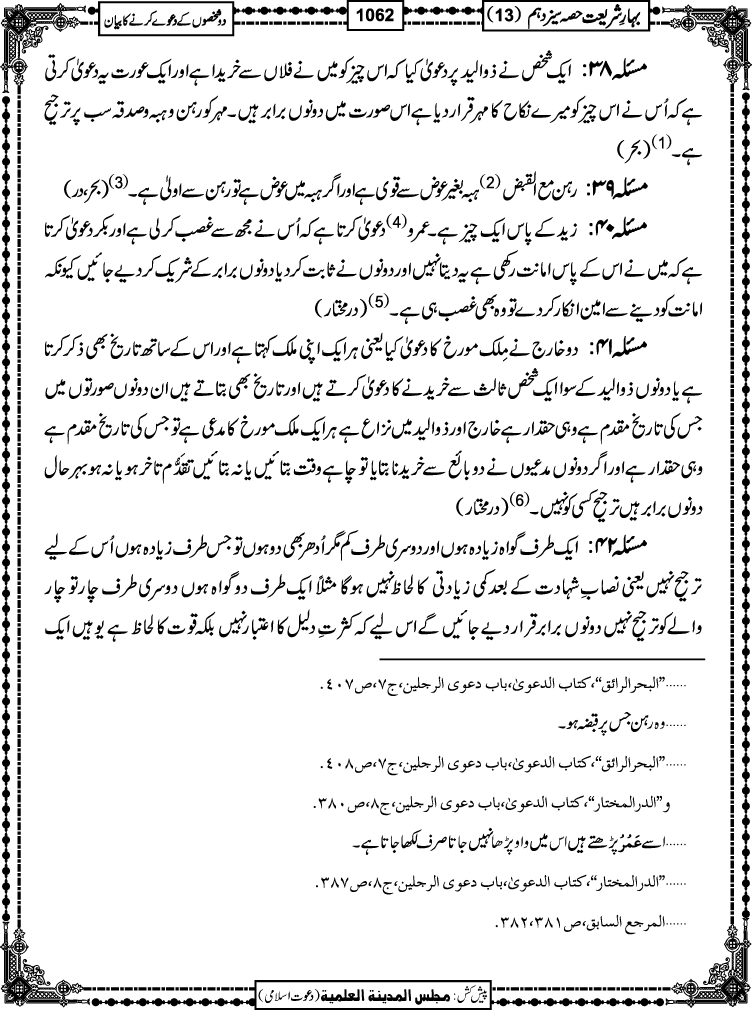 بہارِشریعت حصہ سیزدہم (13)
1062
دو شخصوں کے دعوے کرنے کا بیان
مسئلہ ۳۸: ایک شخص نے ذوالید پر دعویٰ کیا کہ اس چیز کو میں نے فلاں سے خریدا ہے اور ایک عورت یہ دعویٰ کرتی
ہے کہ اُس نے اس چیز کو میرے نکاح کا مہر قرار دیا ہے اس صورت میں دونوں برابر ہیں۔ مہر کو رہن و ہبہ و صدقہ سب پر ترجیح
ہے۔(1) (بحر)
مسئلہ ۳۹: رہن مع القبض (2) ہبہ بغیر عوض سے قوی ہے اور اگر ہبہ میں عوض ہے تو رہن سے اولیٰ ہے۔(3) (بحر، در)
مسئلہ ۴۰: زید کے پاس ایک چیز ہے۔ عمرو(4) دعویٰ کرتا ہے کہ اُس نے مجھ سے غصب کر لی ہے اور بکر دعویٰ کرتا
ہے کہ میں نے اس کے پاس امانت رکھی ہے یہ دیتا نہیں اور دونوں نے ثابت کر دیا دونوں برابر کے شریک کر دیے جائیں کیونکہ
امانت کو دینے سے امین انکار کر دے تو وہ بھی غصب ہی ہے۔(5) (درمختار)
مسئلہ ۴۱: دو خارج نے مِلک مورخ کا دعویٰ کیا یعنی ہر ایک اپنی ملک کہتا ہے اور اس کے ساتھ تاریخ بھی ذکر کرتا
ہے یا دونوں ذوالید کے سوا ایک شخص ثالث سے خریدنے کا دعویٰ کرتے ہیں اور تاریخ بھی بتاتے ہیں ان دونوں صورتوں میں
جس کی تاریخ مقدم ہے وہی حقدار ہے خارج اور ذوالید میں نزاع ہے ہر ایک ملک مورخ کا مدعی ہے تو جس کی تاریخ مقدم ہے
وہی حقدار ہے اور اگر دونوں مدعیوں نے دو بائع سے خریدنا بتایا تو چاہے وقت بتائیں یا نہ بتائیں تقدُّم تاخر ہو یا نہ ہو بہر حال
دونوں برابر ہیں ترجیح کسی کو نہیں۔(6) (درمختار)
مسئلہ ۴۲: ایک طرف گواہ زیادہ ہوں اور دوسری طرف کم مگر اُدھر بھی دو ہوں تو جس طرف زیادہ ہوں اُس کے لیے
ترجیح نہیں یعنی نصابِ شہادت کے بعد کمی زیادتی کا لحاظ نہیں ہوگا مثلاً ایک طرف دو گواہ ہوں دوسری طرف چار تو چار
والے کو ترجیح نہیں دونوں برابر قرار دیے جائیں گے اس لیے کہ کثرتِ دلیل کا اعتبار نہیں بلکہ قوت کا لحاظ ہے یو ہیں ایک
......"البحرالرائق"، کتاب الدعوی، باب دعوی الرجلین، ج۷، ص۴۰۷.
......وہ رہن جس پر قبضہ ہو۔
......"البحرالرائق"، کتاب الدعوی، باب دعوی الرجلین، ج۷، ص۴۰۸.
و "الدرالمختار"، کتاب الدعوی، باب دعوی الرجلین، ج۸، ص۳۸۰.
......اسے عَمْرْ پڑھتے ہیں اس میں واو پڑھا نہیں جاتا صرف لکھا جاتا ہے۔
......"الدرالمختار"، کتاب الدعوی، باب دعوی الرجلین، ج۸، ص۳۸۷.
......المرجع السابق، ص۳۸۱، ۳۸۲.
پیش کش: مجلس المدینۃ العلمیۃ (دعوت اسلامی)